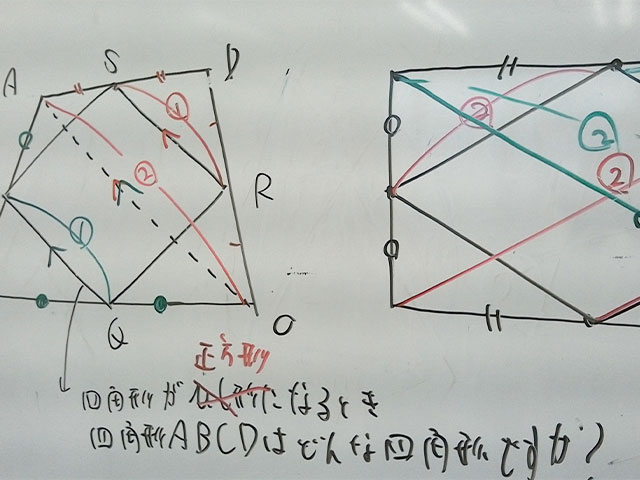 A S D
① ②
② ②
② R
①
Q C
正方形
四角形がひし形になるとき
四角形ABCDはどんな四角形ですか?